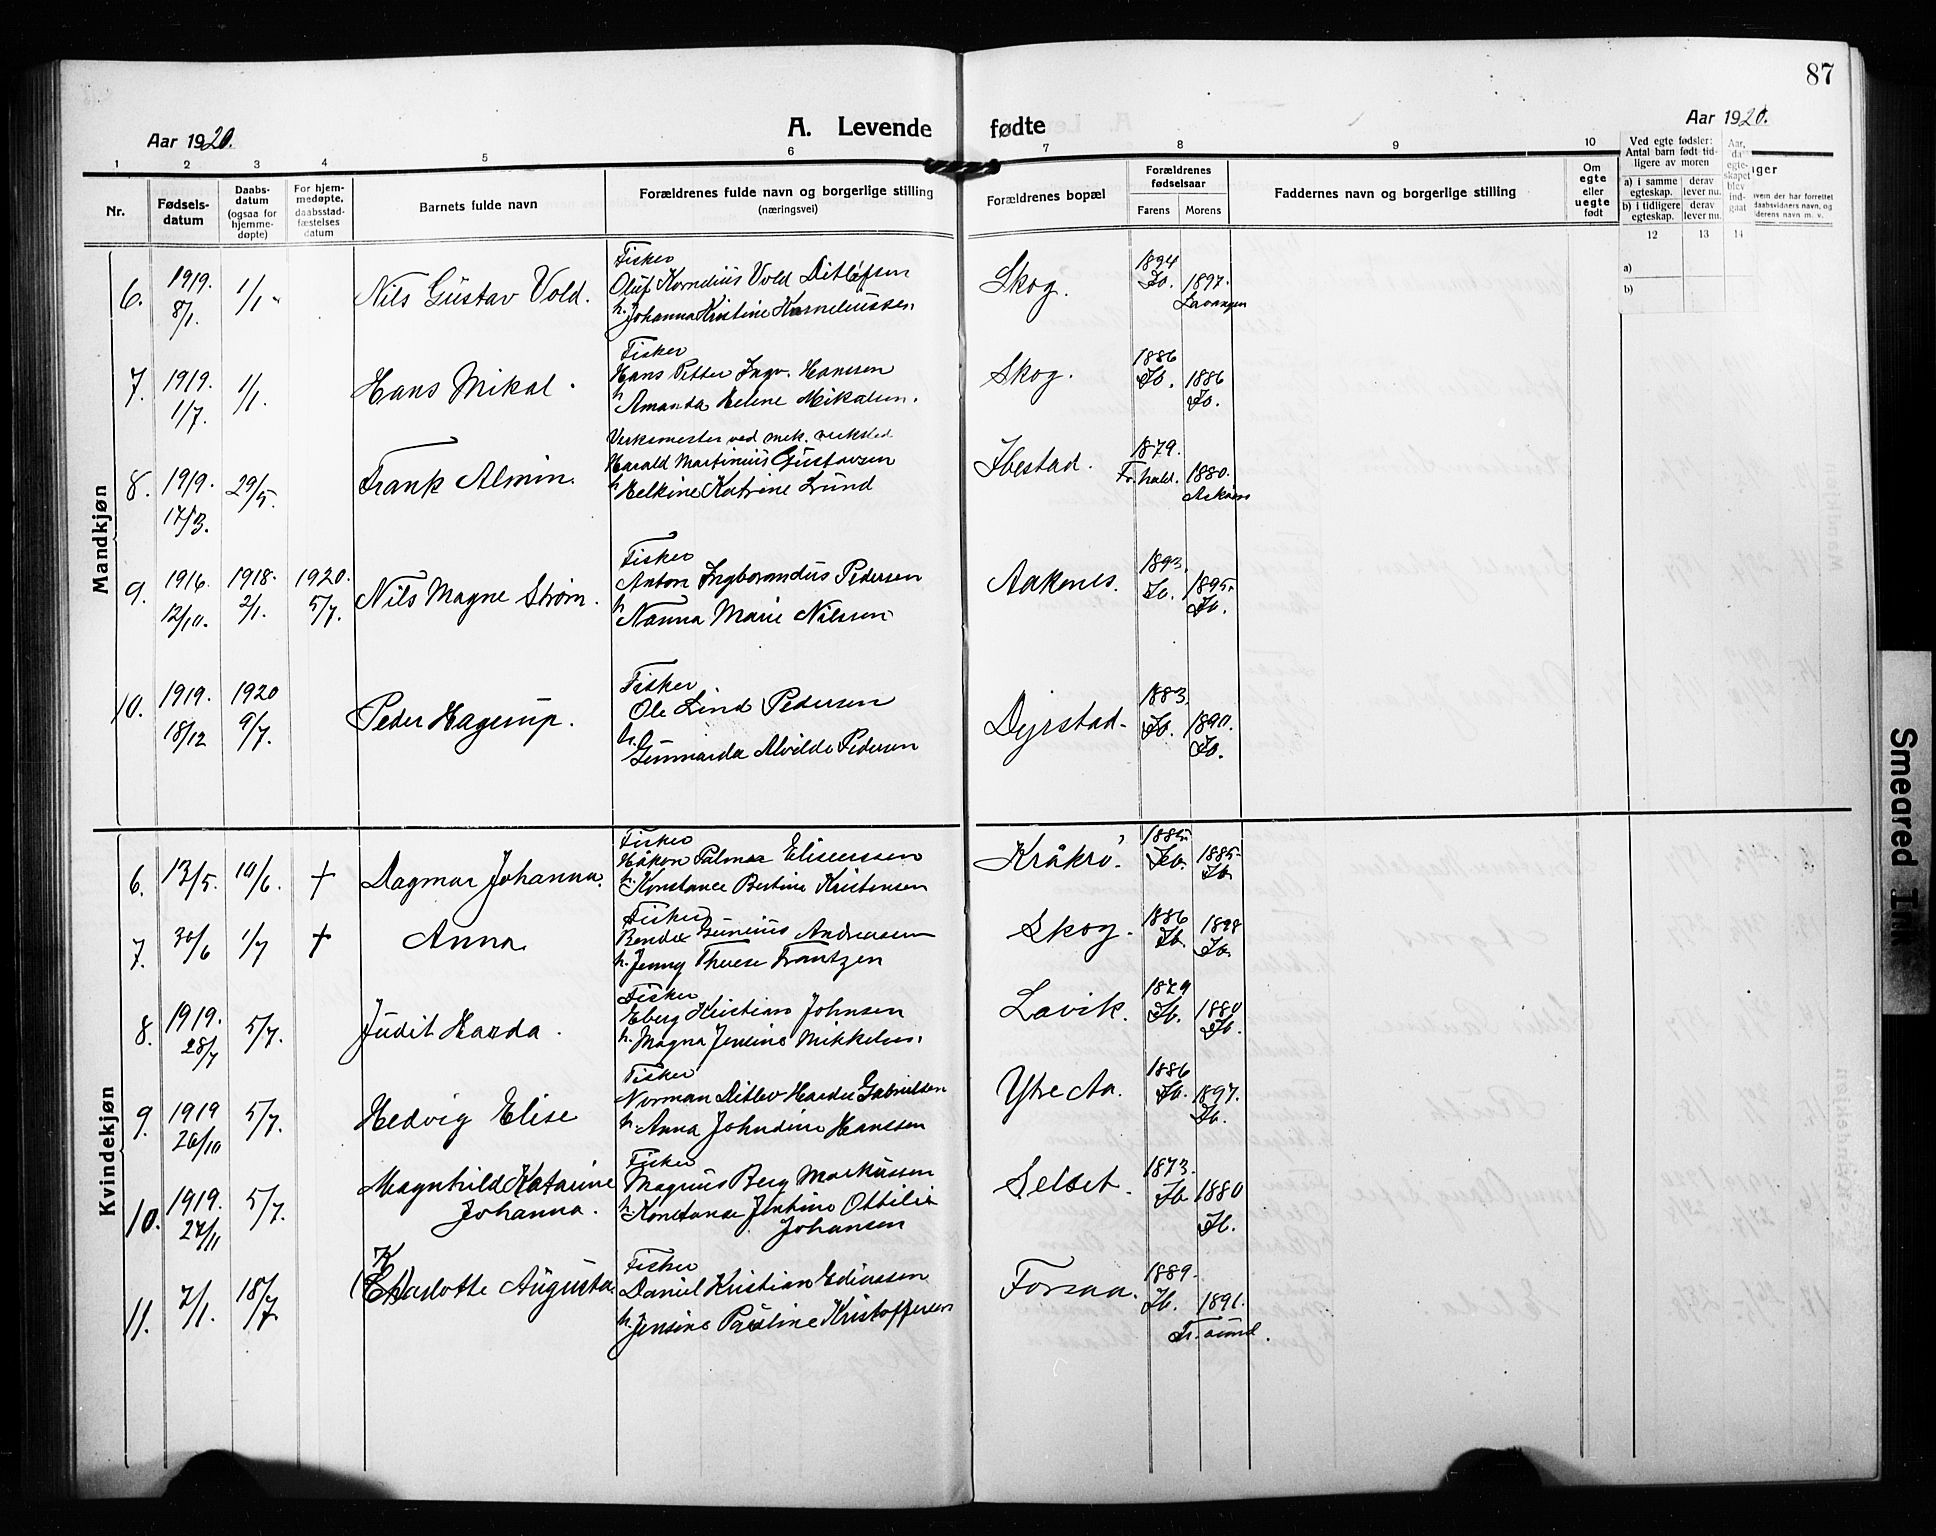 87
Aar 1920.
A. Levende fødte
Aar 1920.
1 2 3 4 5 6 7 8 9 10
Nr.
Fødsels-
datum
Daabs-
datum
(ogsaa for
hjemme-
døpte)
For hjem-
medøpte,
daabsstad-
fæstelses
datum
Barnets fulde navn
Forældrenes fulde navn og borgerlige stilling
(næringsvei)
Forældrenes bopæl
Forældrenes
fødselsaar
Farens Morens
Faddernes navn og borgerlige stilling
Om
egte
eller
uegte
født
Ved egte fødsler:
Antal barn født tid-
ligere av moren
a) i samme
egteskap.
derav
lever nu.
b) i tidligere
egteskap.
derav
lever nu.
Aar,
da
egte-
skapet
blev
ind-
gaat
12 13 14
a)
b)
ger
vem der har forrettet
daabsvidners navn, og
derens navn m. v.
Mandkjøn
6. 1919. 8/1. 1/1. Nils Gustav Vold.
Fisker
Oluf Kornelius Vold Ditlefsen
h. Johanna Kristine Korneliussen
Skog. 1894 Ib. 1897. Lavangen
7. 1919. 1/7. 1/1. Hans Mikal.
Fisker
Hans Petter Ingv. Hansen
h Amanda Helene Mikalsen.
Skog. 1886 Ib. 1886 Ib.
8. 1919. 17/3. 29/5. Frank Almin.
Verksmester ved mek. verksted
Harald Martinius Gustavsen
h Helkine Katrine Lund
Ibestad. 1879. Fr. hald. 1880.
9. 1916. 12/10. 1918. 2/1. 1920. 5/7. Nils Magne Strøm.
Fisker
Anton Ingborandus Pedersen
h Nanna Marie Nilssen
Aakenes. 1893. Ib. 1895. Ib.
10. 1919. 18/12 1920 9/7. Peder Hagerup.
Fisker
Ole Lind Pedersen
h. Gunnarda Alvilde Pedersen
Dyrstad. 1883. Ib. 1890. Ib.
Kvindekjøn
6. 13/5. 10/6. + Dagmar Johanna.
Fisker
Håkon Palmar Eliseussen
h. Konstance Bertine Kristensen
Kråkrø. 1885. Ib. 1885. Ib.
7. 30/6 1/7 + Anna
Fisker
Bendix Gunius Andreasen
h. Jenny Therese Frantzen
Skog. 1886 Ib. 1898 Ib.
8. 1919. 28/7 5/7. Judit Harda.
Fisker
Eberg Kristian Johnsen
h. Magna Jensine Mikkelsen.
Lavik. 1879 Ib. 1880 Ib.
9. 1919 26/10 5/7. Hedvig Elise
Fisker
Norman Ditlev Harder Gabrielsen
h. Anna Johndine Hanssen
Ytre Aa. 1886 Ib. 1897. Ib.
10. 1919. 27/11 5/7. Magnhild Katarine
Johanna.
Fisker
Magnus Berg Markussen
h. Konstanse Jentine Ottilie
Johansen
Selset. 1873. Ib 1880 Ib.
K
11. 7/1. 18/7 (Ch)arlotte Augusta.
Fisker
Daniel Kristian Edinssen
h. Jensine Pauline Kristoffersen
Forsaa. 1889. Ib. 1891. Tr. sund.
Smeared Ink